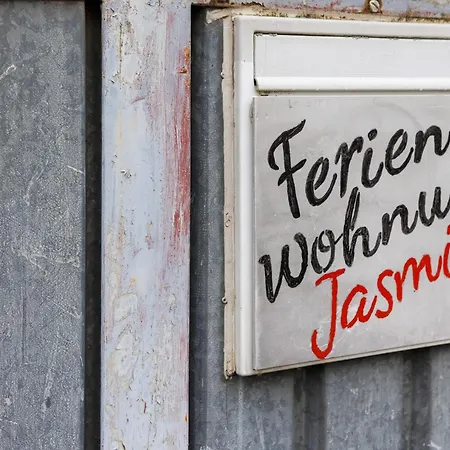 Ferien
wohnu
Jasmi